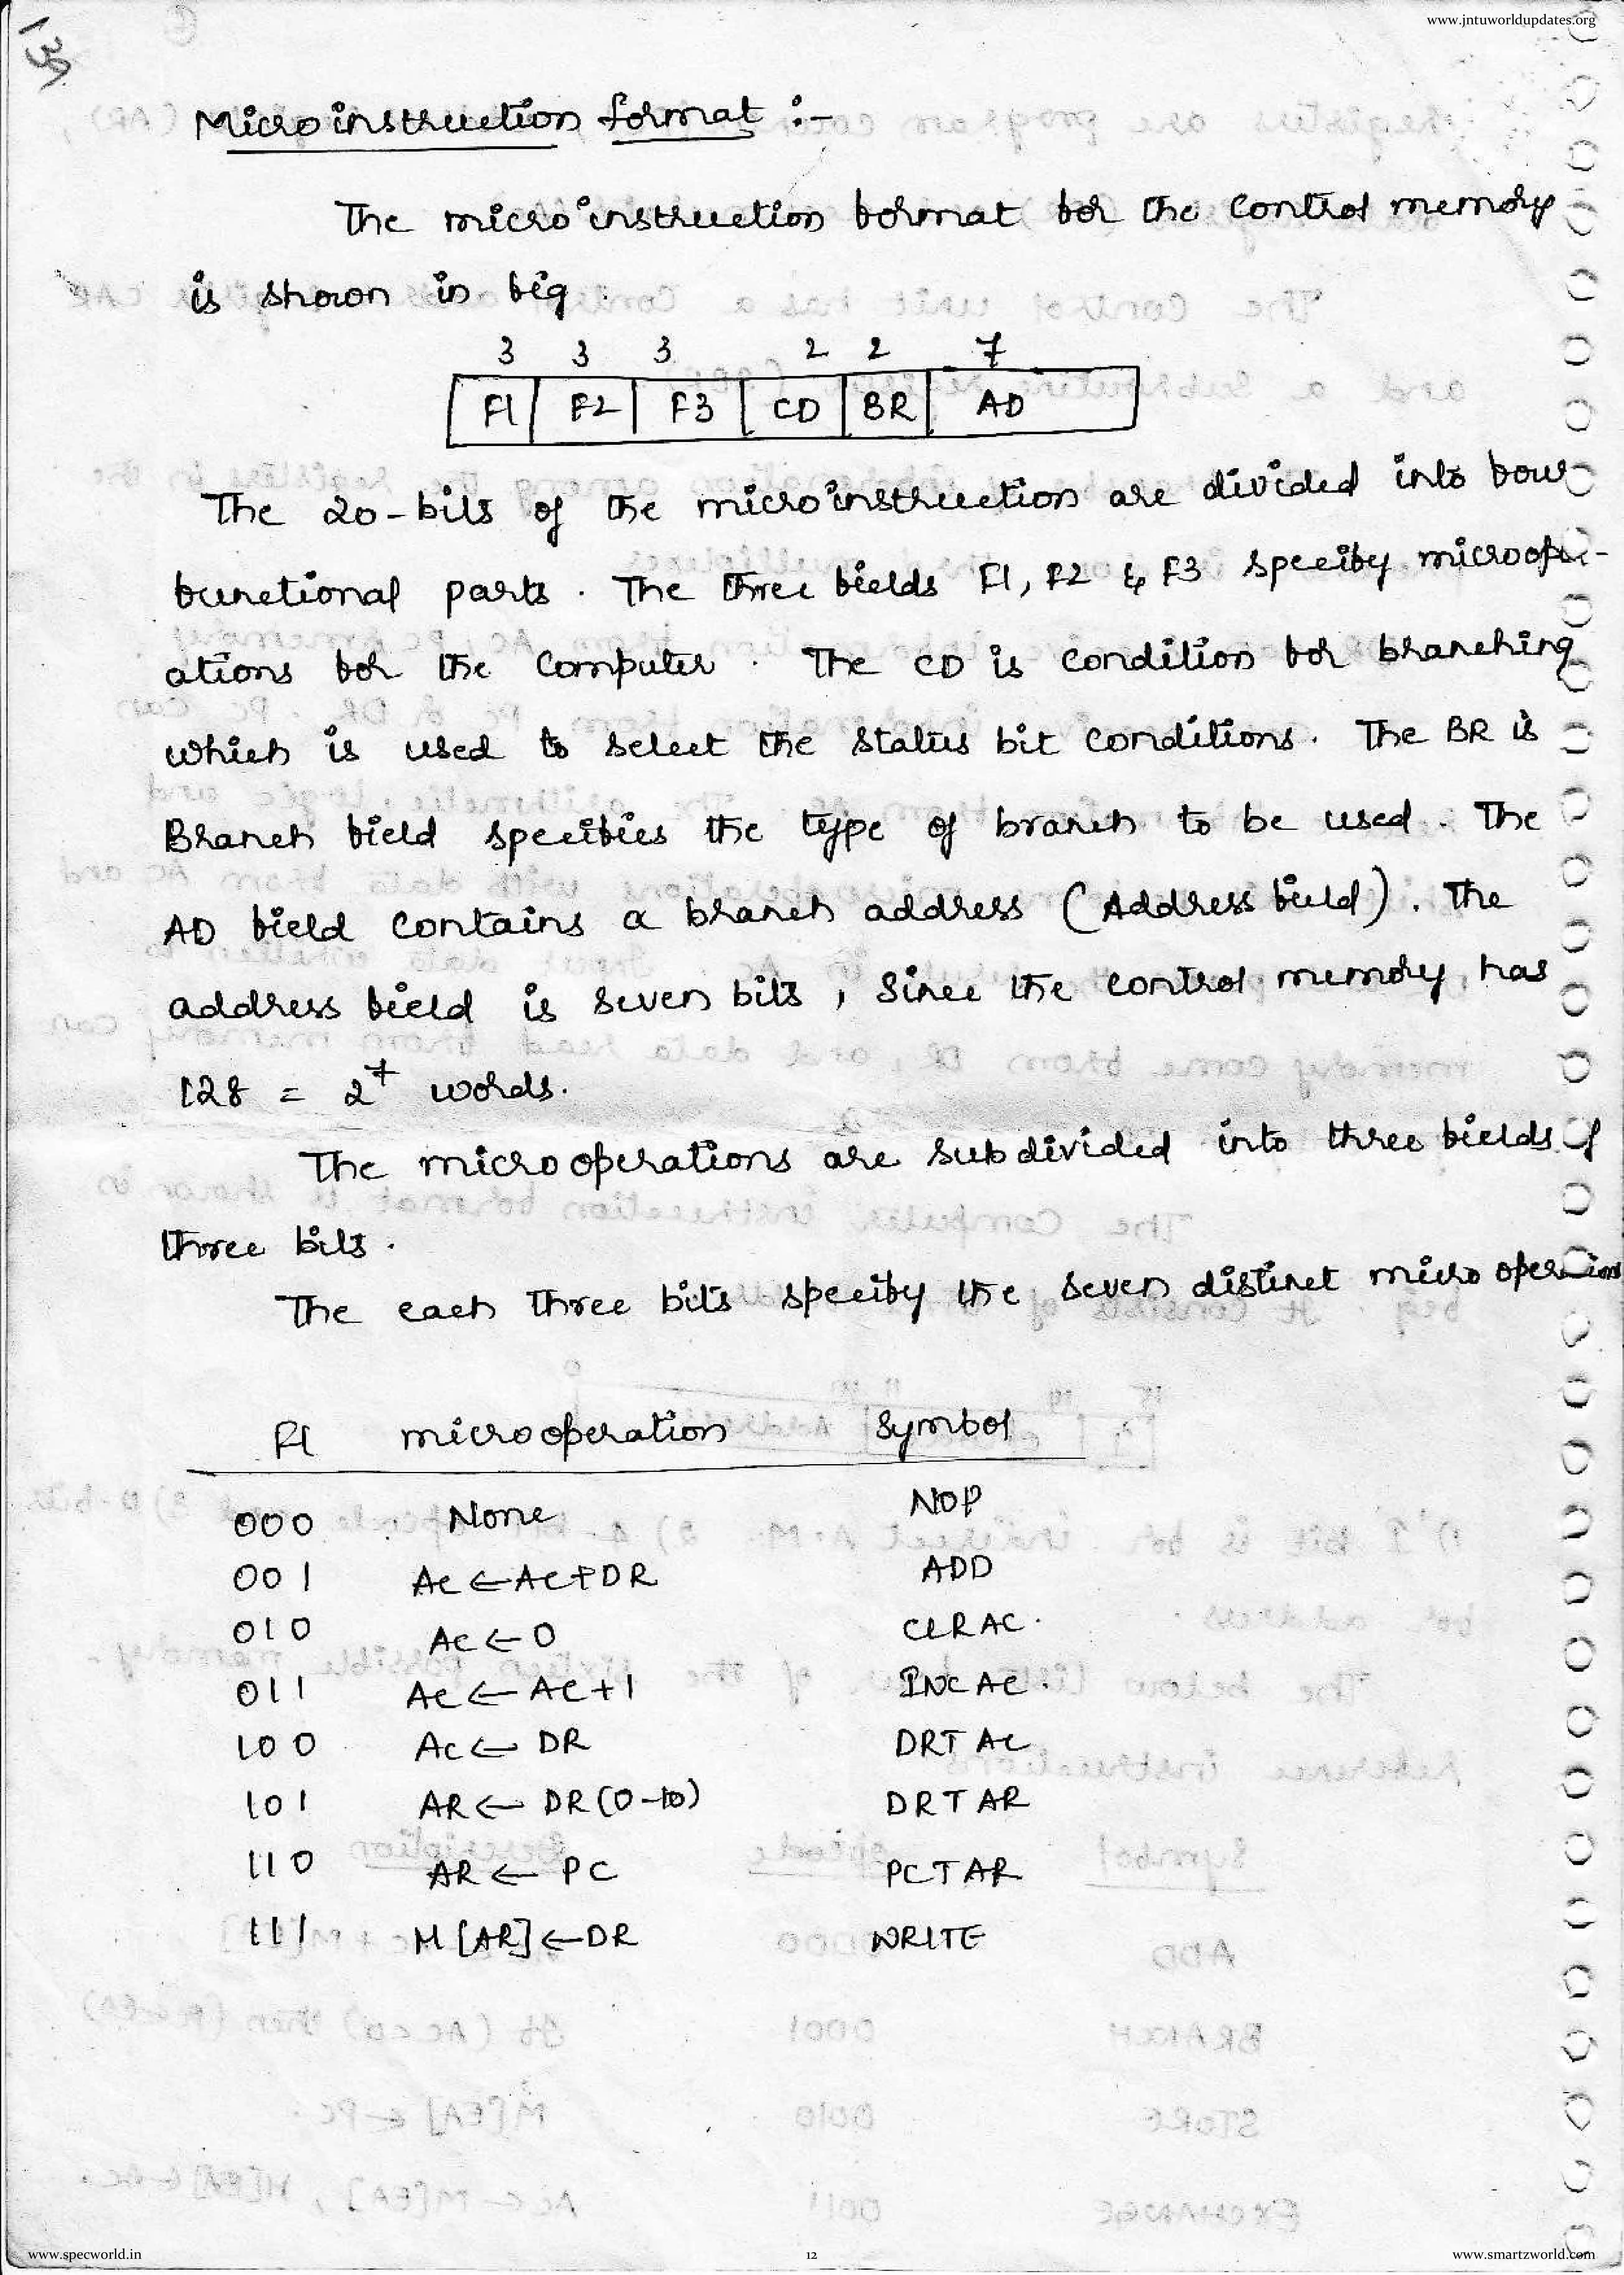 www.jntuworldupdates.org
139
Microinstruction format :-
The microinstruction format for the control memory
is shown in fig
3 3 3 2 2 7
F1 F2 F3 CD BR AD
The 20-bits of the microinstruction are divided into four
functional parts. The three fields F1, F2 & F3 specify microoper-
ations for the computer. The CD is condition for branching
which is used to select the status bit conditions. The BR is
Branch field specifies the type of branch to be used. The
AD field contains a branch address (Address field). The
address field is seven bits, since the control memory has
128 = 2⁷ words.
The microoperations are subdivided into three fields of
three bits.
The each three bits specify the seven distinct micro operations
F1 microoperation Symbol
000 None NOP
001 AC ← AC+DR ADD
010 AC ← 0 CLRAC.
011 AC ← AC+1 INCAC.
100 AC ← DR DRTAC
101 AR ← DR(0-10) DRTAR
110 AR ← PC PCTAR
111 M[AR] ← DR WRITE
www.specworld.in
12
www.smartzworld.com